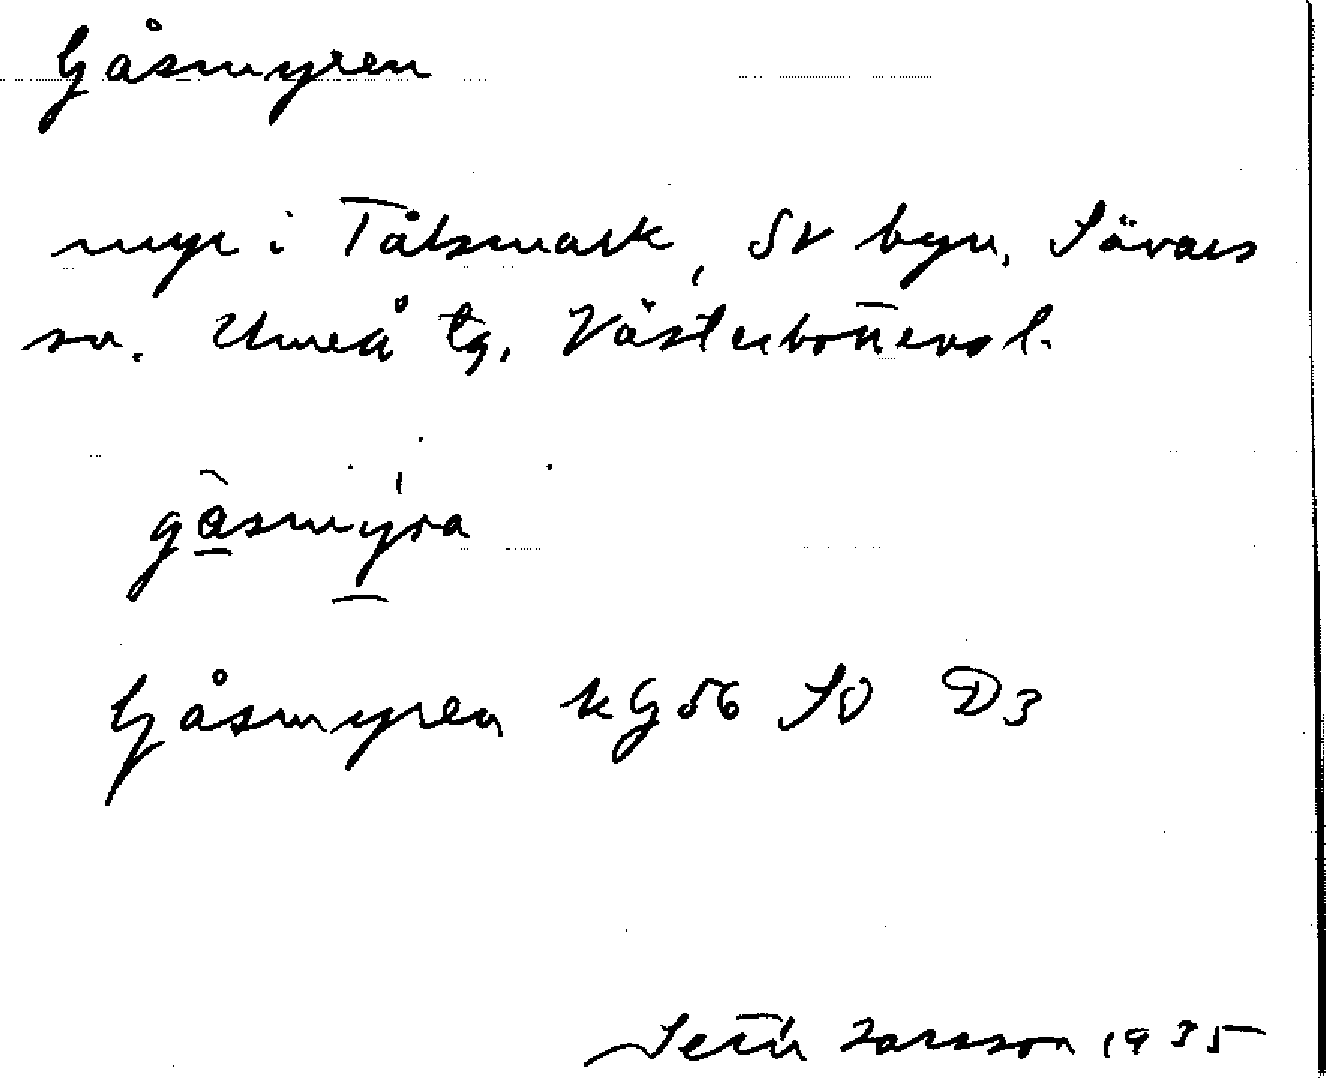 Gåsmyren
myr i Tålsmark, SV byn, Sävars
sn. Umeå tg. Västerbottens l.
gåsmyra
Gåsmyren kG56 SO D3
Larsson 1935